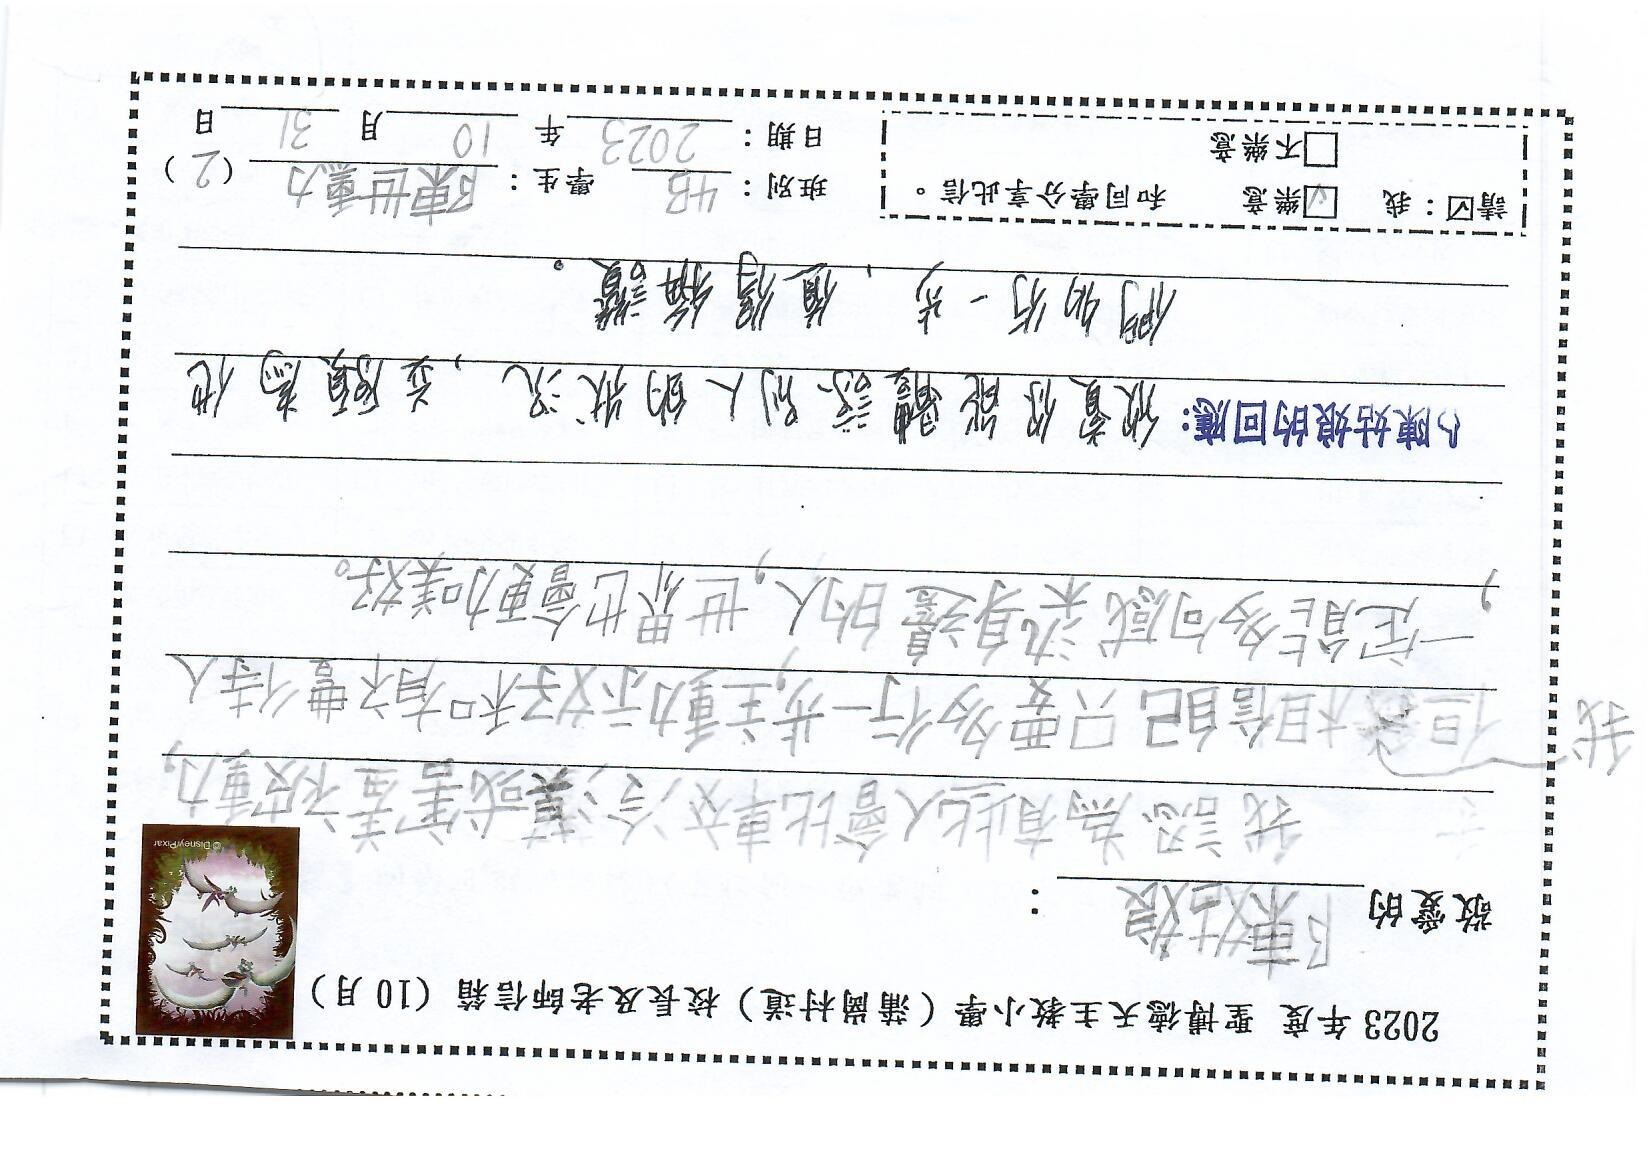 2023 年度 聖博德天主教小學（蒲崗村道）校長及老師信箱（10 月）
©Disney/Pixar
敬愛的 陳姑娘 ：
我認為有些人會比較冷漠或害羞被動，
但我相信自己只要多行一步，主動示好和有禮貌待人
，一定能夠感染身邊的人，世界也會更加美好。
陳姑娘的回應：欣賞你能體諒別人的狀況，並願為他
們多行一步，值得稱讚。
請☑：我 ☑樂意 和同學分享此信。
□不樂意
班別：4B 學生：陳世勳（2）
日期：2023 年 10 月 31 日